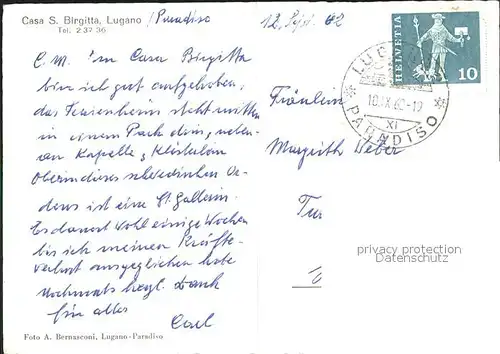 Casa S. Birgitta, Lugano / Paradiso
Tel. 2 37 36
12. Sept. 62
HELVETIA
10
LUGANO
10.IX.62-19
XI
PARADISO
C. M. Im Casa Birgitta
bin ich gut aufgehoben,
das Ferienheim steht mitten
in einem Park drin, neben-
an Kapelle & Klösterlein
Oberin dieses schwedischen Or-
dens ist eine St. Gallerin.
Es dauert wohl einige Wochen
bis ich meinen Kräfte-
verlust ausgeglichen habe
Nochmals herzl. Dank
für alles
Carl
Fräulein
Margrith Weber
privacy protection
Datenschutz
Foto A. Bernasconi, Lugano-Paradiso